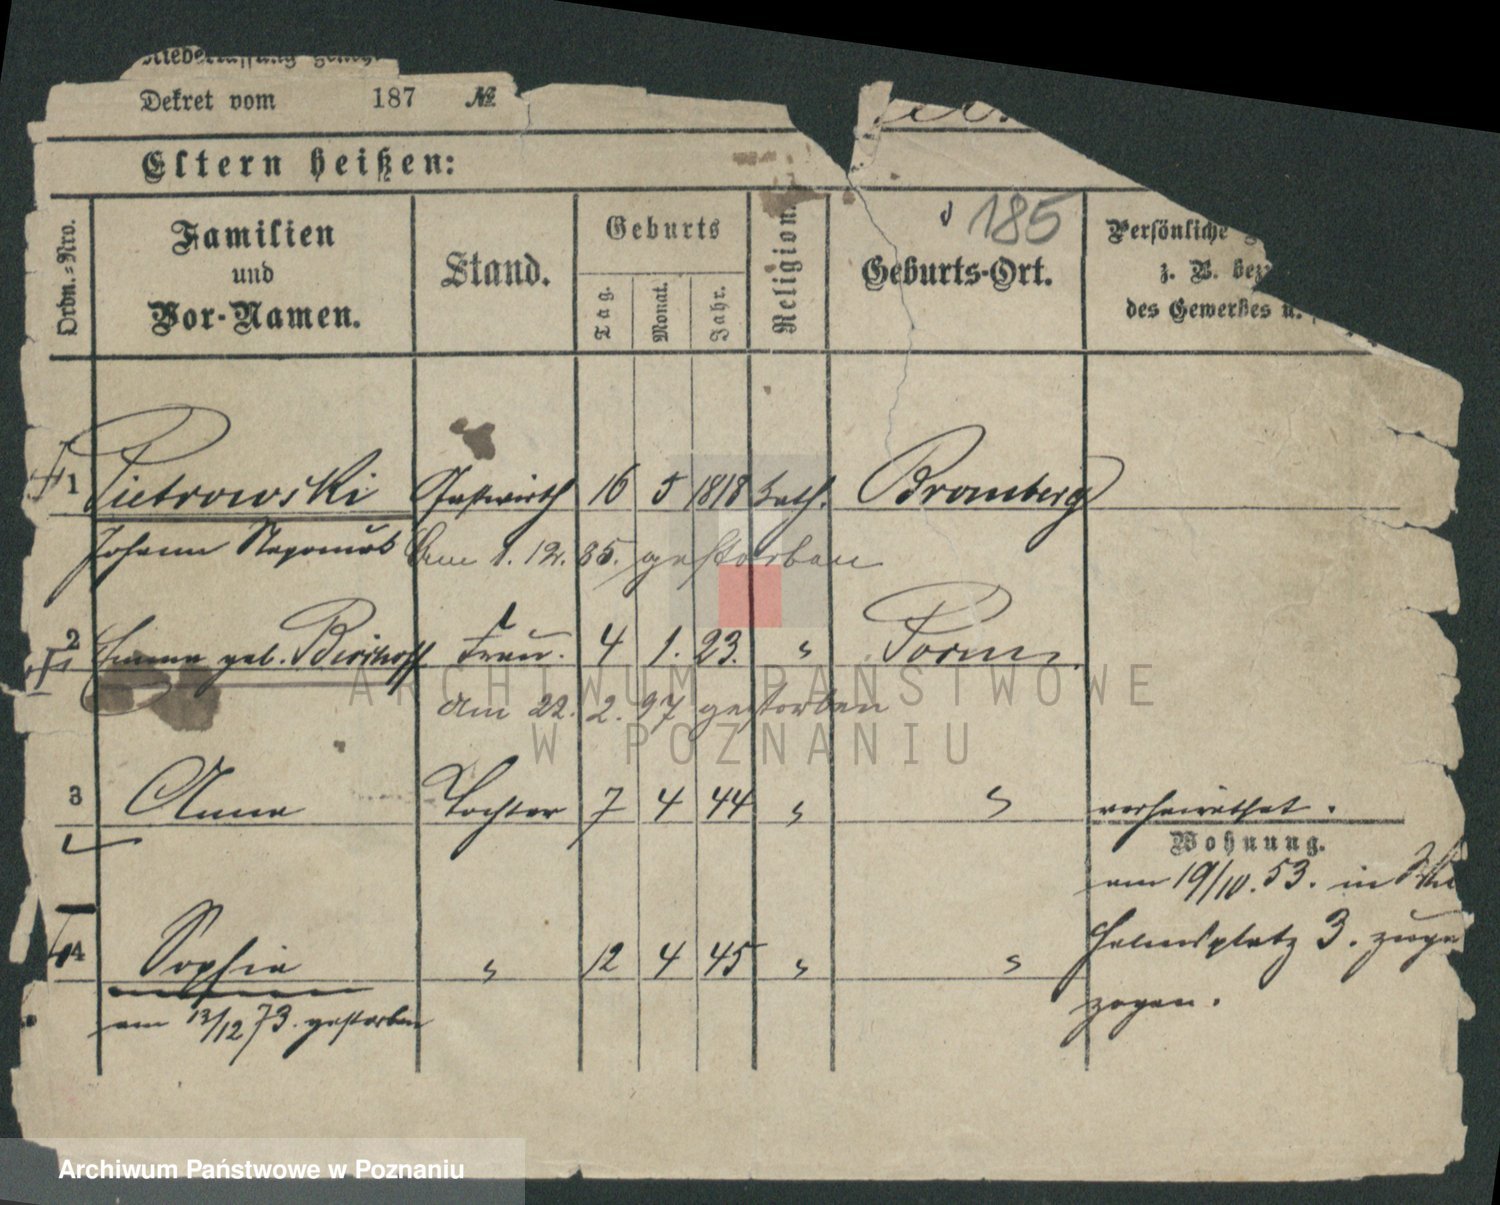 Dekret vom 187 №
Eltern heißen:
Ordn.-Nro.
Familien
und
Vor-Namen.
Stand.
Geburts
Tag.
Monat.
Jahr.
Religion.
185
Geburts-Ort.
Persönliche
z. B.
des Gewerbes u.
1 Pietrowski Gastwirth 16 5 1818 kath. Bromberg
Johann Nepomuk am 1. 12. 85. gestorben
2 Emma geb. Bischoff Frau. 4 1. 23. "
am 22. 2. 97 gestorben
3 Anna Tochter 7 4 44 " " verheirathet.
Wohnung.
am 19/10. 53. in Wil
helmsplatz 3. zuge
zogen.
4 Sophia " 12 4 45 " "
am 13/12 73. gestorben
ARCHIWUM PAŃSTWOWE
W POZNANIU
Archiwum Państwowe w Poznaniu